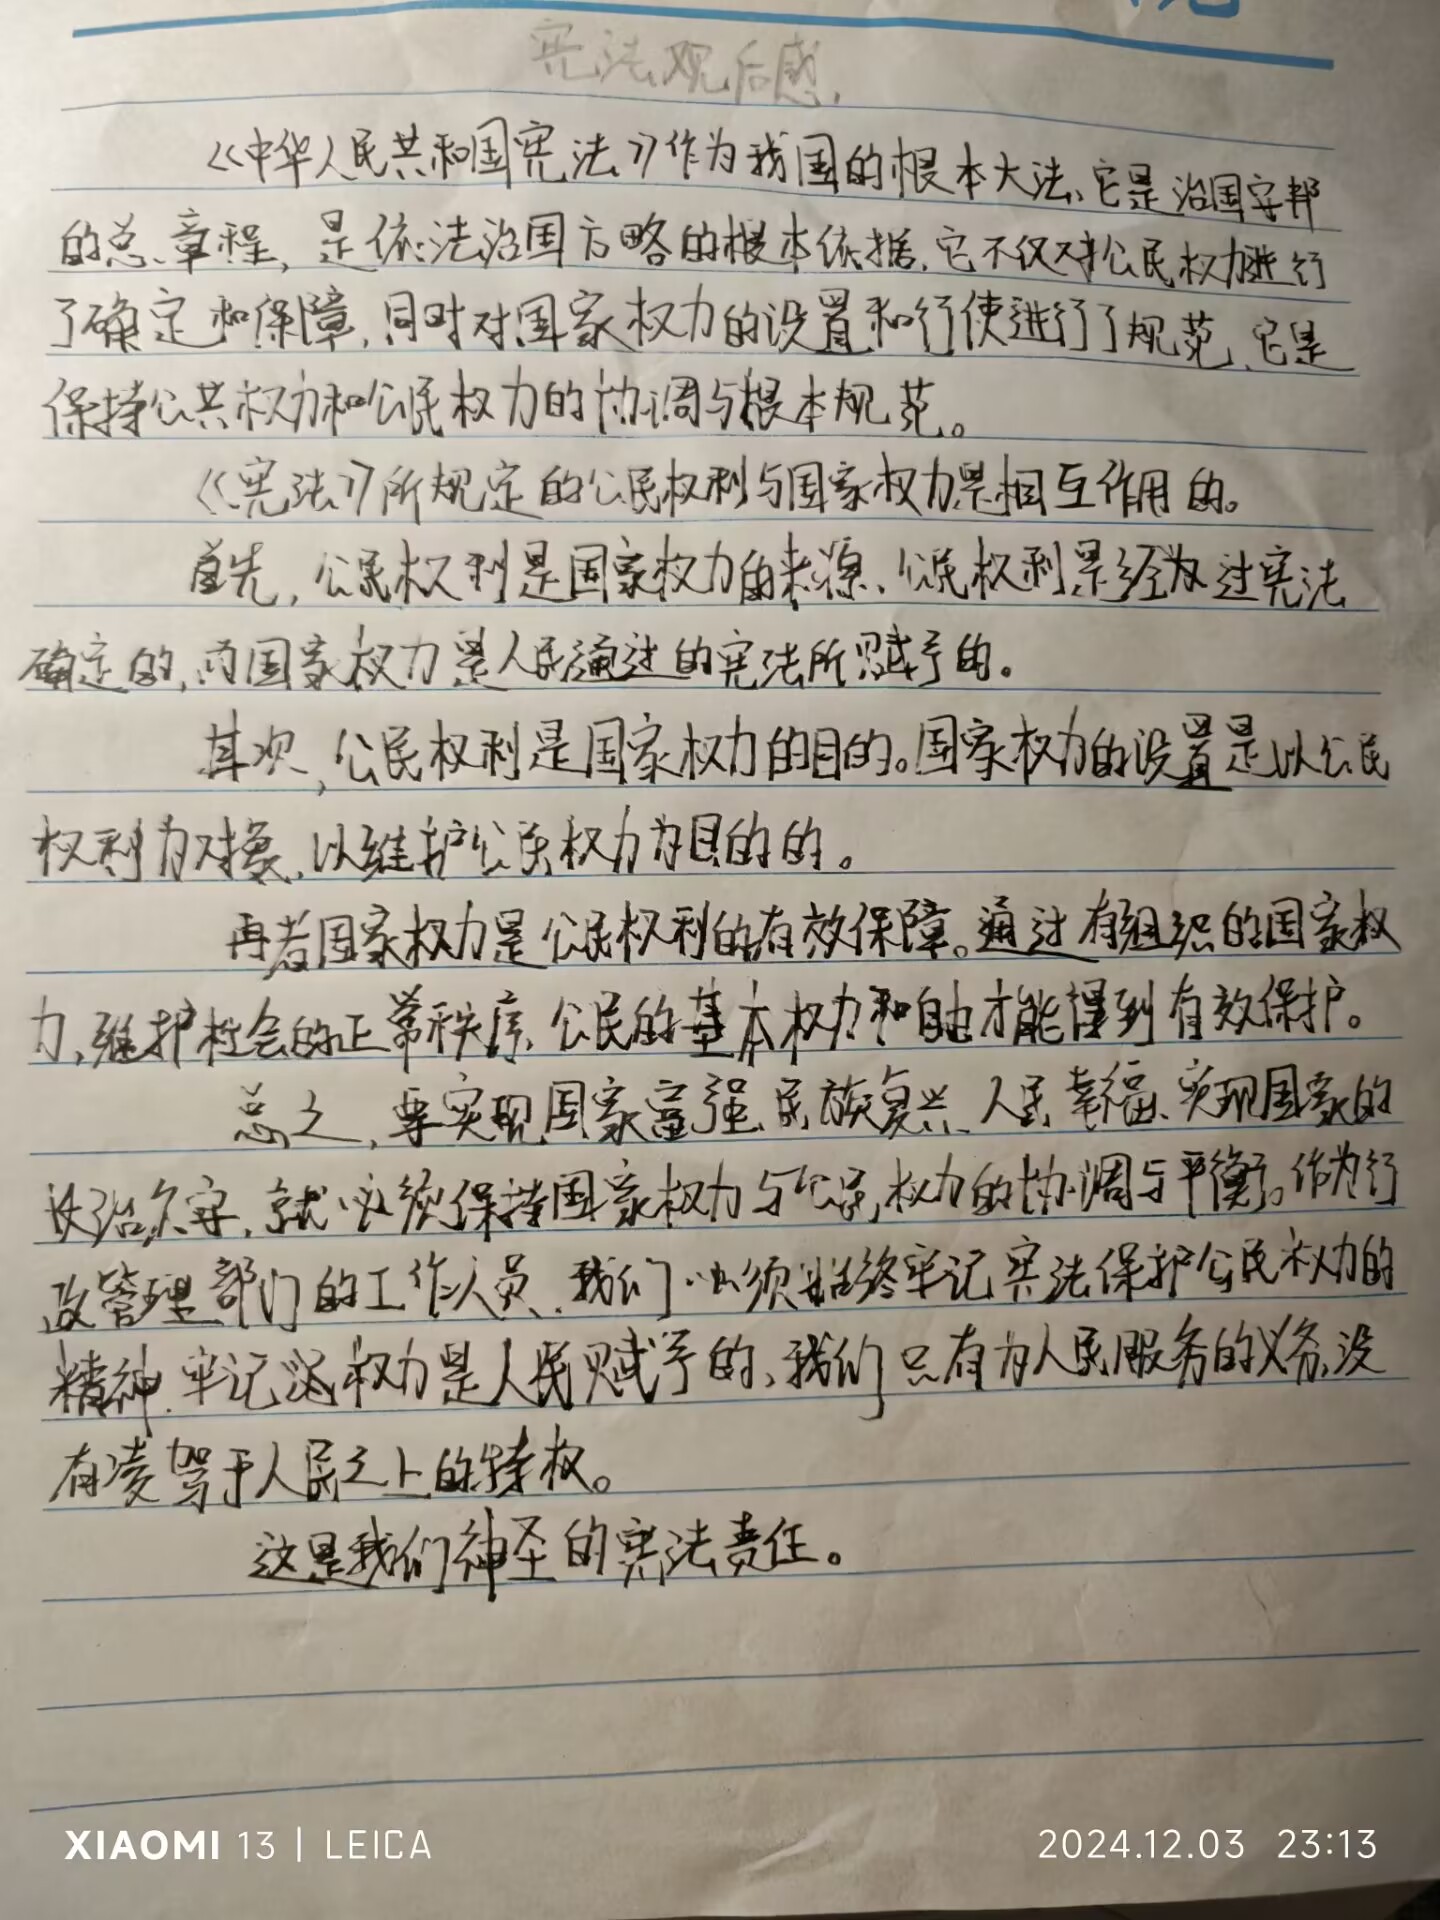 宪法观后感.
《中华人民共和国宪法》作为我国的根本大法、它是治国安邦
的总章程，是依法治国方略的根本依据，它不仅对公民权力进行
了确定和保障，同时对国家权力的设置和行使进行了规范，它是
保持公共权力和公民权力的协调与根本规范。
《宪法》所规定的公民权利与国家权力是相互作用的。
首先，公民权利是国家权力的来源、公民权利是经过宪法
确定的，而国家权力是人民通过的宪法所赋予的。
其次，公民权利是国家权力的目的。国家权力的设置是以公民
权利为对象，以维护公民权力为目的的。
再者国家权力是公民权利的有效保障。通过有组织的国家权
力，维护社会的正常秩序，公民的基本权力和自由才能得到有效保护。
总之，要实现国家富强、民族复兴、人民幸福、实现国家的
长治久安，就必须保持国家权力与公民权力的协调与平衡。作为行
政管理部门的工作人员，我们必须始终牢记宪法保护公民权力的
精神，牢记权力是人民赋予的、我们只有为人民服务的义务，没
有凌驾于人民之上的特权。
这是我们神圣的宪法责任。
XIAOMI 13 | LEICA
2024.12.03 23:13